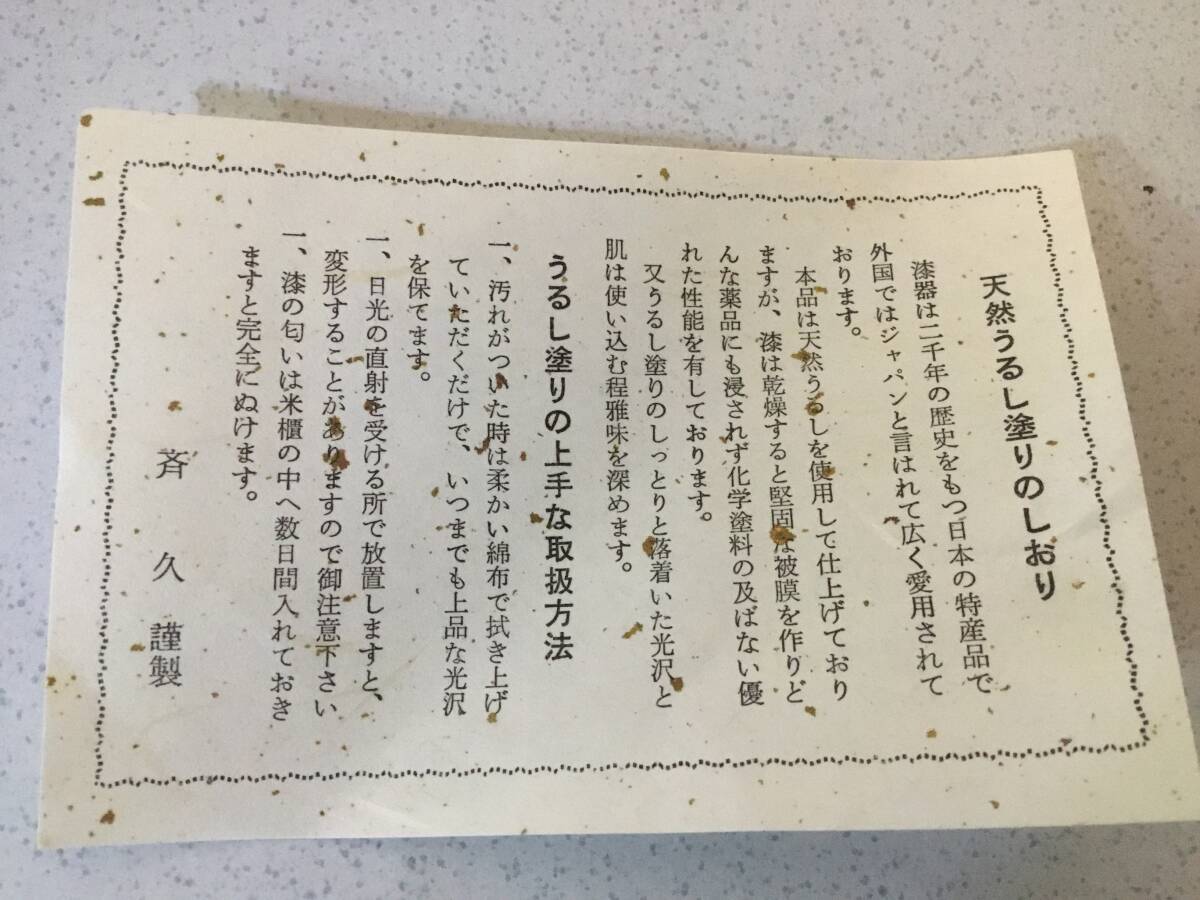 天然うるし塗りのしおり
漆器は二千年の歴史をもつ日本の特産品で
外国ではジャパンと言はれて広く愛用されて
おります。
本品は天然うるしを使用して仕上げており
ますが、漆は乾燥すると堅固な被膜を作りど
んな薬品にも浸されず化学塗料の及ばない優
れた性能を有しております。
又うるし塗りのしっとりと落着いた光沢と
肌は使い込む程雅味を深めます。
うるし塗りの上手な取扱方法
一、汚れがついた時は柔かい綿布で拭き上げ
ていただくだけで、いつまでも上品な光沢
を保てます。
一、日光の直射を受ける所で放置しますと、
変形することがありますので御注意下さい
一、漆の匂いは米櫃の中へ数日間入れておき
ますと完全にぬけます。
斉久謹製